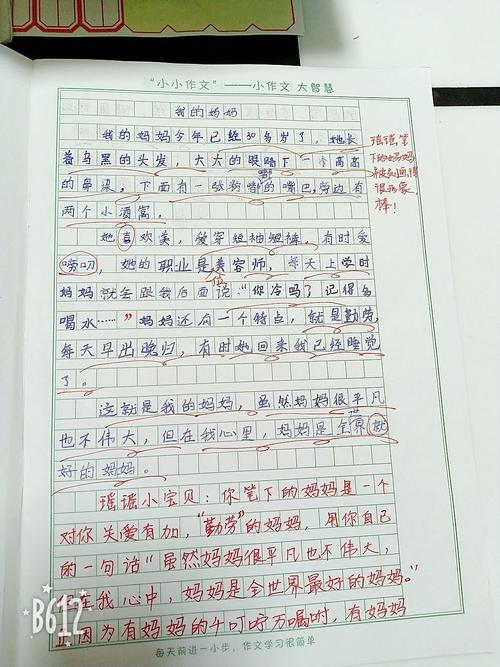 “小小作文”——小作文 大智慧
我的妈妈
我的妈妈今年已经30多岁了，她长
着乌黑的头发，大大的眼睛下一个高高
的鼻梁，下面有一张嘟嘟的嘴巴，旁边有
两个小酒窝。
她喜欢美，爱穿短袖短裤。有时爱
唠叨，她的职业是美容师，每天上学时
妈妈就会跟我后面说：“你冷吗？记得多
喝水……”妈妈还有一个特点，就是勤劳，
每天早出晚归，有时她回来我已经睡觉
了。
这就是我的妈妈，虽然妈妈很平凡
也不伟大，但在我心里，妈妈是全界就
好的妈妈。
瑶瑶笔
下的妈妈
被刻画得
很形象，
棒！
嘟
位
世
瑶瑶小宝贝：你笔下的妈妈是一个
对你关爱有加，“勤劳”的妈妈，用你自己
的一句话“虽然妈妈很平凡也不伟大，
在我心中，妈妈是全世界最好的妈妈。”
因为有妈妈的千叮咛万嘱咐，有妈妈
每天前进一小步，作文学习很简单
B612